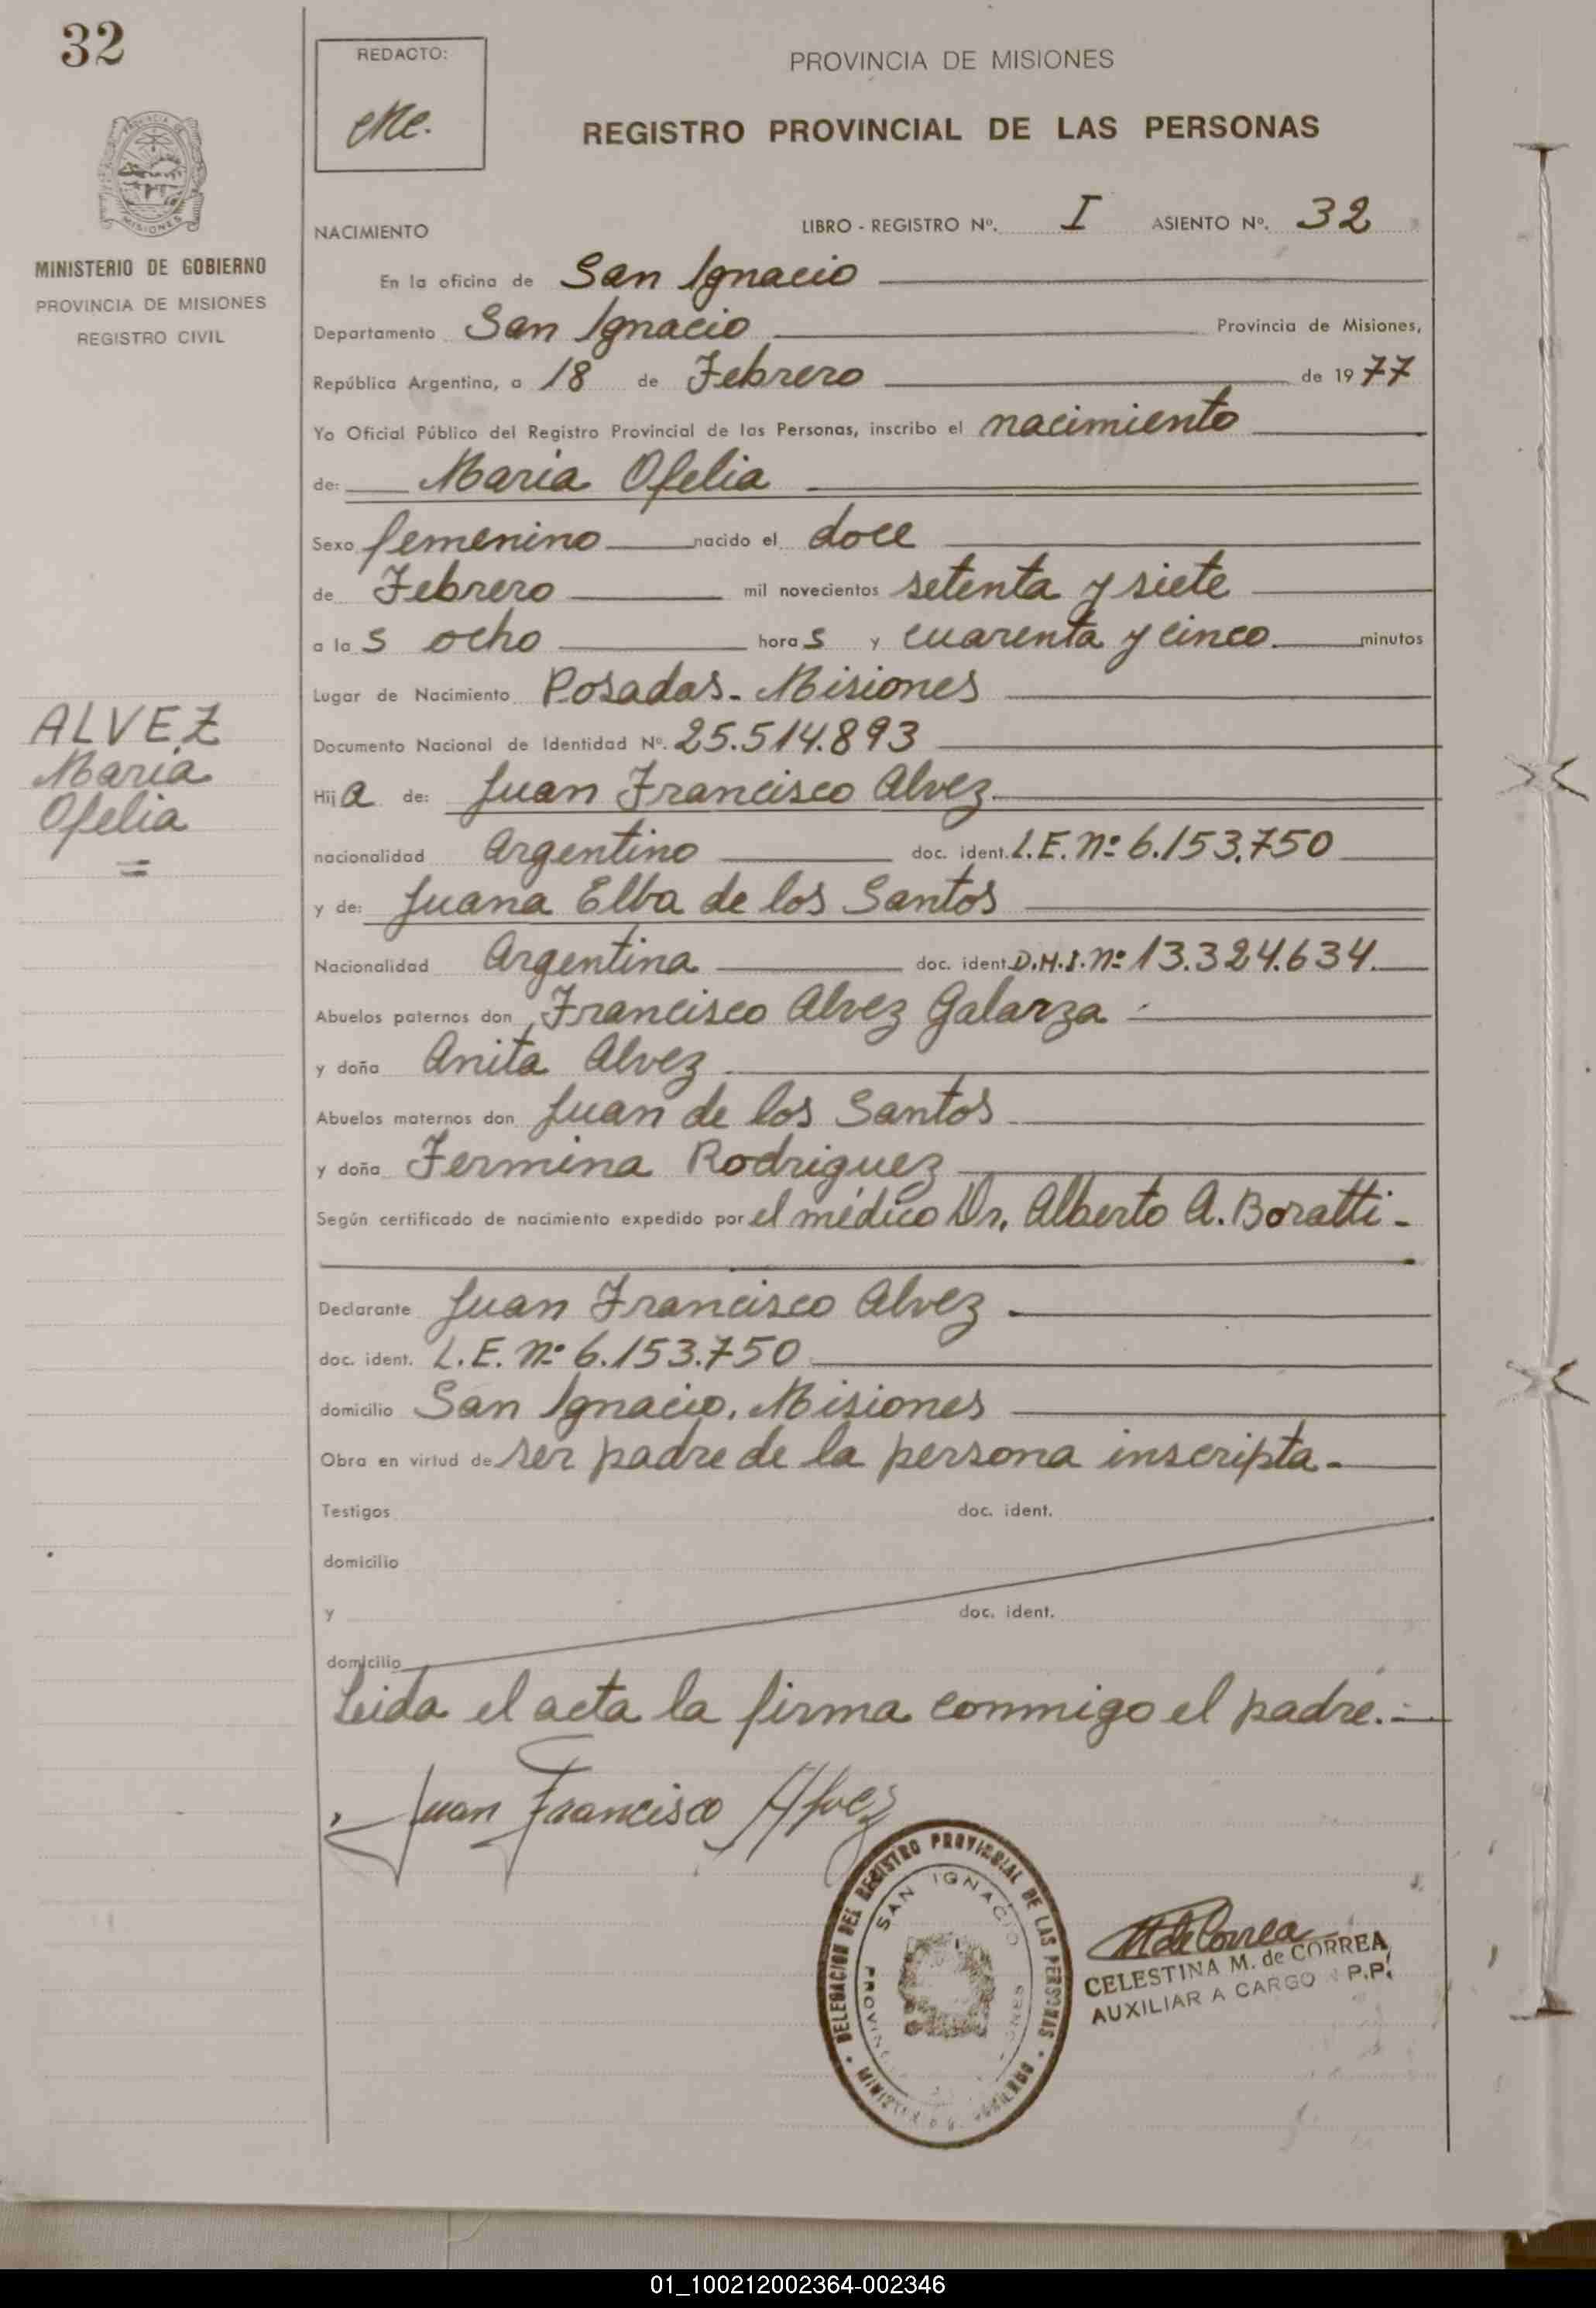 32
REDACTO:
PROVINCIA DE MISIONES
REGISTRO PROVINCIAL DE LAS PERSONAS
MINISTERIO DE GOBIERNO
PROVINCIA DE MISIONES
REGISTRO CIVIL
NACIMIENTO LIBRO - REGISTRO Nº. I ASIENTO Nº. 32
En la oficina de San Ignacio
Departamento San Ignacio Provincia de Misiones,
República Argentina, a 18 de Febrero de 1977
Yo Oficial Público del Registro Provincial de las Personas, inscribo el nacimiento
de: Maria Ofelia
Sexo femenino nacido el doce
de Febrero mil novecientos setenta y siete
a las ocho horas y cuarenta y cinco minutos
Lugar de Nacimiento Posadas - Misiones
ALVEZ
Maria
Ofelia
Documento Nacional de Identidad Nº. 25.514.893
Hija de: Juan Francisco Alvez
nacionalidad Argentino doc. ident. L.E. nº 6.153.750
y de: Juana Elba de los Santos
Nacionalidad Argentina doc. ident. D.N.I. nº 13.324.634
Abuelos paternos don Francisco Alvez Galarza
y doña Anita Alvez
Abuelos maternos don Juan de los Santos
y doña Fermina Rodriguez
Según certificado de nacimiento expedido por el médico Dr. Alberto A. Boratti -
Declarante Juan Francisco Alvez
doc. ident. L.E. nº 6.153.750
domicilio San Ignacio, Misiones
Obra en virtud de ser padre de la persona inscripta -
Testigos doc. ident.
domicilio
y doc. ident.
domicilio
Leida el acta la firma conmigo el padre. -
Juan Francisco Alvez
DELEGACION DEL REGISTRO PROVINCIAL DE LAS PERSONAS
SAN IGNACIO
CELESTINA M. de CORREA
AUXILIAR A CARGO P.P.
01_100212002364-002346